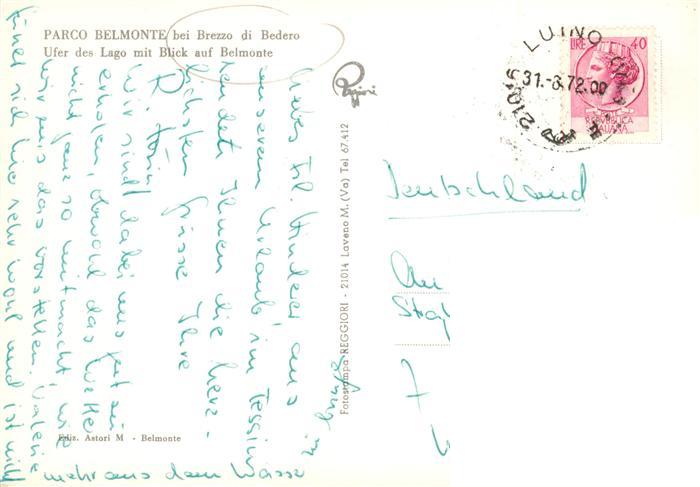 PARCO BELMONTE bei Brezzo di Bedero
Ufer des Lago mit Blick auf Belmonte
Reggiori
LUINO
21016
31.-8.72.00
LIRE 40
REPUBBLICA
ITALIANA
Fotostampa REGGIORI - 21014 Laveno M. (Va) Tel 67.412
Ediz. Astori M - Belmonte
Liebes Frl. aus
unserem Urlaub im Tessin
sendet Ihnen die herz-
lichsten Grüsse Ihre
Wir sind dabei uns gut zu
erholen, obwohl das Wetter
nicht ganz so mitmacht wie
wir uns das vorstellen. Valerie
fühlt sich hier sehr wohl und ist nicht
mehr aus dem Wasser
Deutschland
An